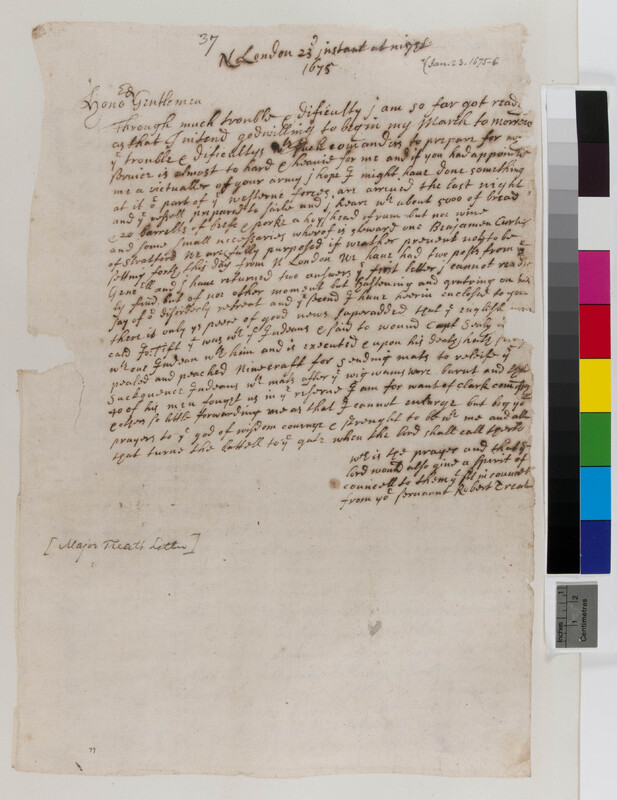 37
N London 23d instant at night
1675
(Jan. 23. 1675-6
Honoed Gentlemen
Through much trouble & dificulty j am so far got readi
as that I intend godwilling to begin my March to morrow
ye trouble & dificultys wth such comanders to prepare for any
servics is almost to hard & heavie for me and if you had appointed
me a victualler of your army j hope I might have done something
at it ye part of ye westerne forces are arrived the last night
and ye vessell prepared to saile and j heare wth about 5000 of bread
& 20 barrells of biefe & porke a hogshead of rum but no wine
and some small necessaries wherof is steward one Benjamen Curtis
of Stratford we are fully purposed if weather prevent not to be
setting forth this day from N London we have had two posts from ye
Genell and j have returned two answers ye first letter j cannot readily
by find but of no other moment but hastening and on his
day of disorderly retreat and ye second I have heerin enclosed to you
there is only ys peece of good news superadded that ye english man
cald Tift yt was wth ye Indeans & said to wound Capt Sealy is
wth one Indean wth him and is executed & upon his death
and peached Ninecraft for sending mats to releife ye
Indeans wth mats after ye wigwams were burnt and that
40 of his men fought us in ye I am for want of clark
& so little forwarding me as that I cannot enlarge but beg yor
prayers to ye god of wisdom courage & strenght to be wth me and all
that turne the battell to ye gate when the lord shall call therto
wch is the prayer and that ye
lord would also give a spirit of
councell to them yt sit in councel
from yor servant Robert Treat
[Major Treat's Letter]
77
Inches
1
2
Centimetres